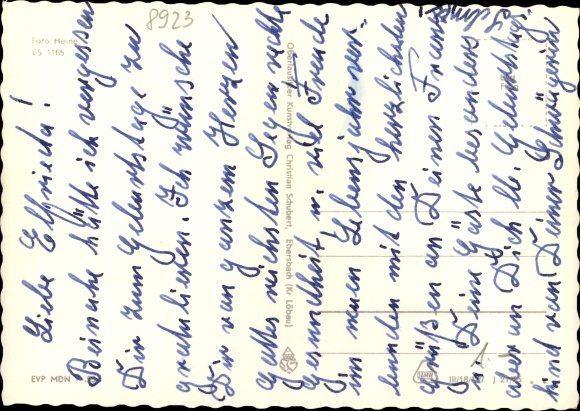 Liebe Elfrieda!
Beinahe hätte ich vergessen
Dir zum Geburtstage zu
gratulieren. Ich wünsche
Dir von ganzem Herzen
Gottes reichsten Segen, recht
Gesundheit u. viel Freude
im neuen Lebensjahr ver-
bunden mit den herzlichsten
Grüßen an Deinen Franz
u. Deine Gäste besonders
aber an Dich lb. Geburtstags-
kind von Deiner Schwägerin
8923
Foto Heine
CS 1166
Oberlausitzer Kunstverlag Christian Schubert, Ebersbach (Kr Löbau)
EVP MDN